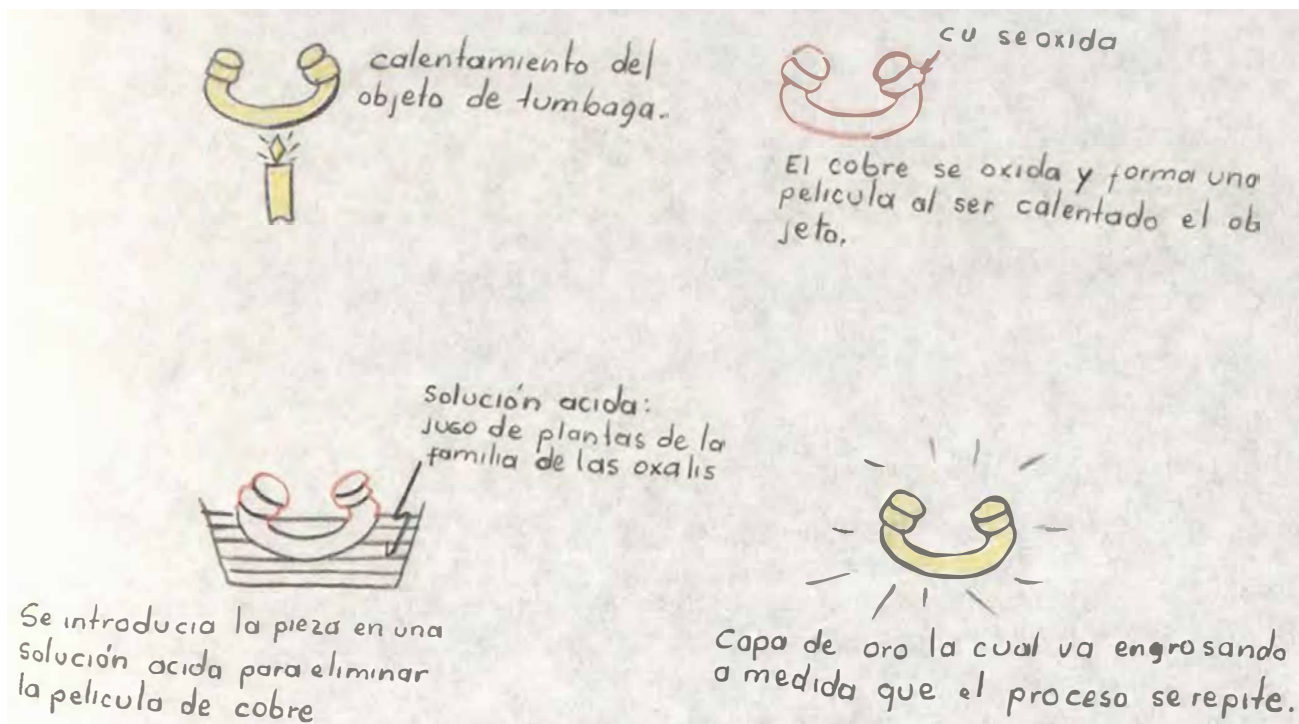 calentamiento del
objeto de tumbaga.
cu se oxida
El cobre se oxida y forma una
pelicula al ser calentado el ob
jeto.
Solución acida:
jugo de plantas de la
familia de las oxalis
Se introducia la pieza en una
Solución acida para eliminar
la pelicula de cobre
Capa de oro la cual va engrosando
a medida que el proceso se repite.